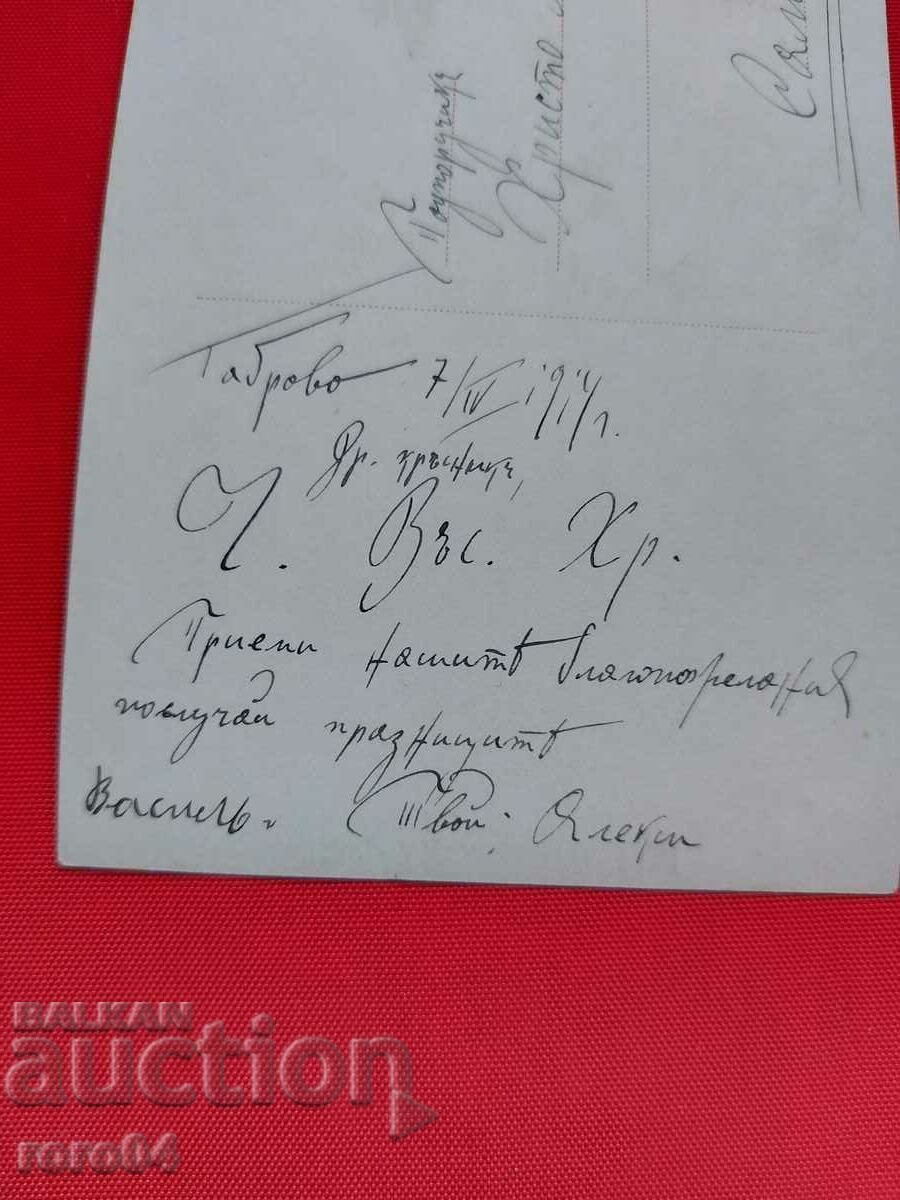 Подпоручикъ
Христо
Габрово 7/IV 1914 г.
Др. кръстникъ,
Ч. Въс. Хр.
Приеми нашитѣ благопожелания
послучай празницитѣ
Василъ. Твой: Алекси
BALKAN
auction
roro04